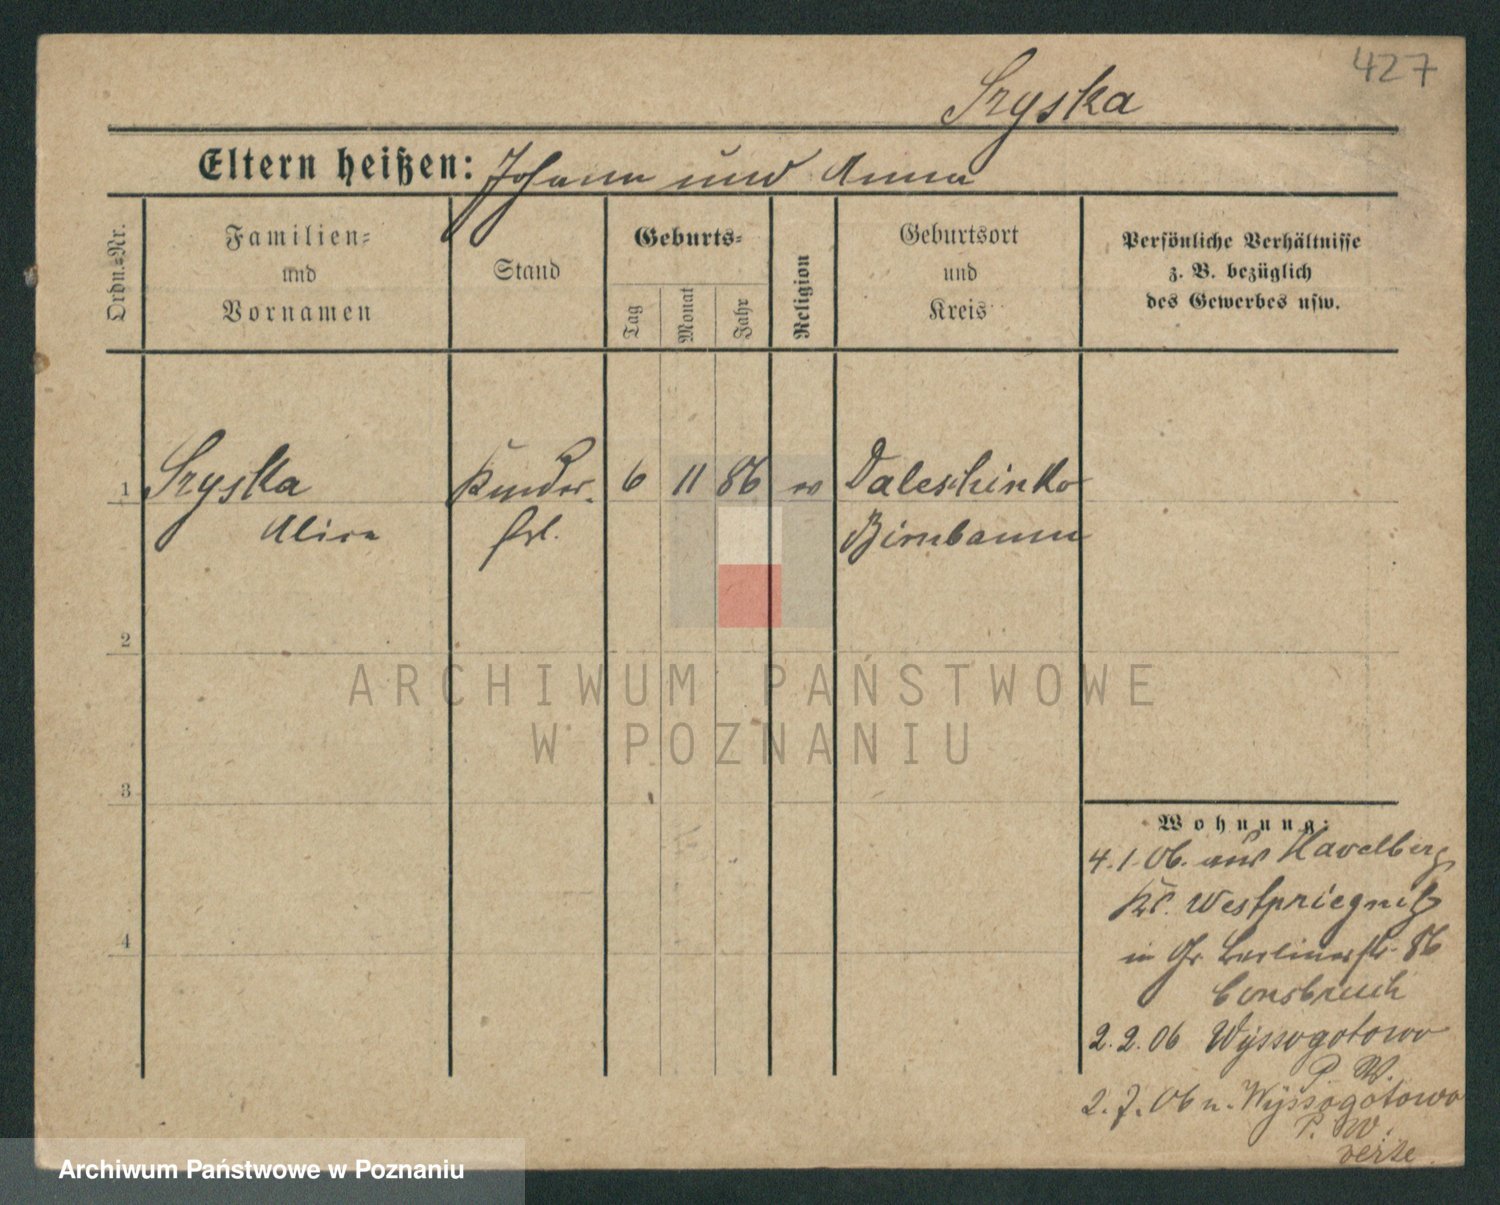 427
Szyska
Eltern heißen: Johann und Anna
Ordn.-Nr.
Familien-
und
Vornamen
Stand
Geburts-
Tag
Monat
Jahr
Religion
Geburtsort
und
Kreis
Persönliche Verhältnisse
z. B. bezüglich
des Gewerbes usw.
1 Szyska Kinder- 6 11 86 ev Daleschinko
frl. Birnbaum
2
3
4
Wohnung:
4.1.06. aus Havelberg
Kr. Westpriegnitz
in Gr Berlinerstr. 86
Consbruch
2.2.06 Wyssogotowo
P. W.
2.7.06 n. Wyssogotowo
P. W.
verte
ARCHIWUM PAŃSTWOWE
W POZNANIU
Archiwum Państwowe w Poznaniu